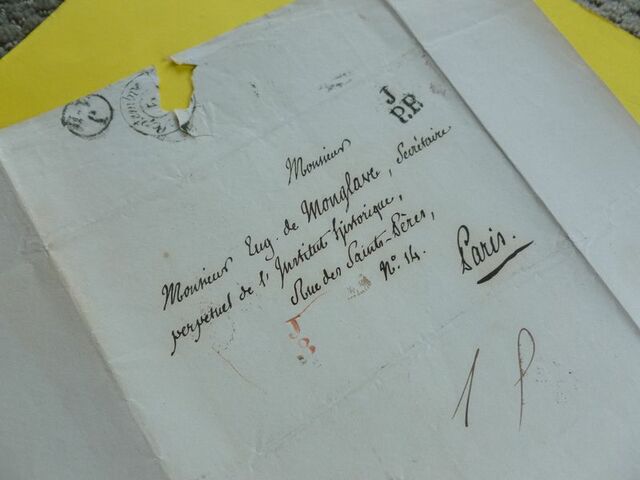 J
P.P.
Monsieur
Monsieur Eug. de Monglave, Secrétaire
perpétuel de l'Institut historique,
Rue des Saints-Pères,
N.º 14.
Paris.
J